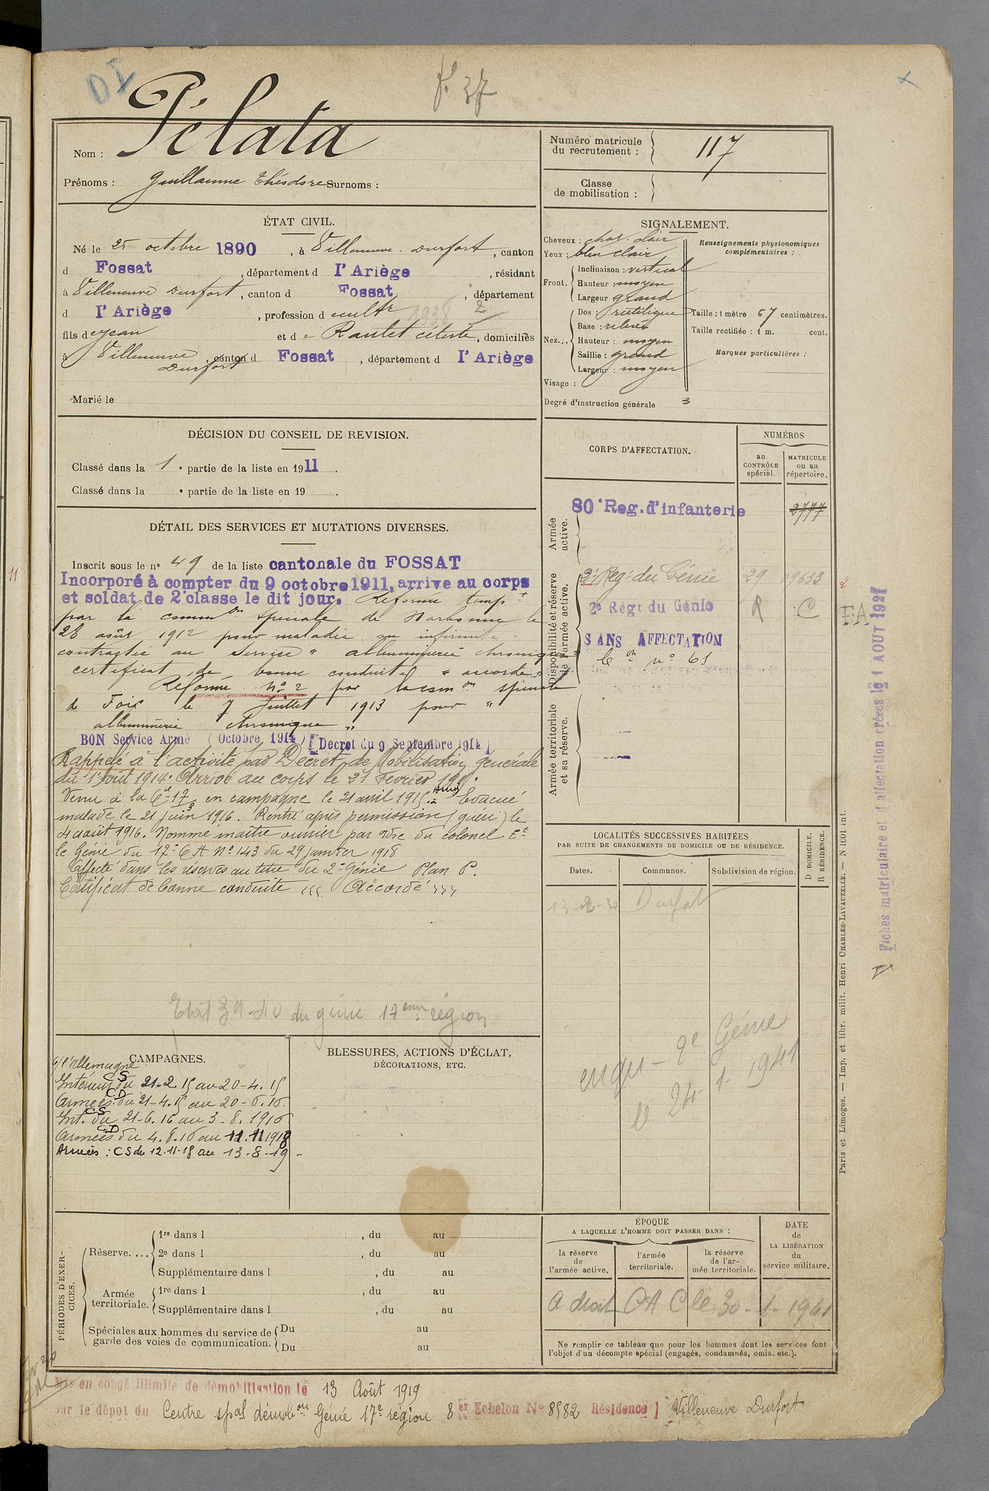 DI
f. 37
Nom : Pélata
Prénoms : Guillaume Théodore Surnoms :
Numéro matricule du recrutement : 117
Classe de mobilisation :
ÉTAT CIVIL.
Né le 25 octobre 1890, à Villeneuve-Durfort, canton
d Fossat, département d l'Ariège, résidant
à Villeneuve Durfort, canton d Fossat, département
d l'Ariège, profession d cultr
fils de Jean et de Raulet Céleste, domiciliés
à Villeneuve Durfort, canton d Fossat, département d l'Ariège
Marié le
SIGNALEMENT.
Cheveux : chat. clair
Yeux : bleu clair
Front. Inclinaison : vertical
Hauteur : moyen
Largeur : grand
Nez... Dos : rectiligne
Base : relevé
Hauteur : moyen
Saillie : grand
Largeur : moyen
Visage :
Renseignements physionomiques complémentaires :
Taille : 1 mètre 67 centimètres.
Taille rectifiée : 1 m. cent.
Marques particulières :
Degré d'instruction générale 3
DÉCISION DU CONSEIL DE REVISION.
Classé dans la 1e partie de la liste en 1911.
Classé dans la e partie de la liste en 19 .
DÉTAIL DES SERVICES ET MUTATIONS DIVERSES.
Inscrit sous le no 49 de la liste cantonale du FOSSAT
Incorporé à compter du 9 octobre 1911, arrive au corps
et soldat de 2e classe le dit jour. Réformé tempt
par la common spéciale de Narbonne le
28 août 1912 pour maladie ou infirmité
contractée au service "albuminurie chronique"
certificat de bonne conduite "accordé"
Réformé no 2 par la comon spéciale
de Foix le 7 juillet 1913 pour "
albuminurie chronique "
BON Service Armé (Octobre 1914) [Décret du 9 Septembre 1914]
Rappelé à l'activité par Décret de Mobilisation Générale
du 1er Août 1914. Arrivé au corps le 21 février 1915.
Venu à la Cie 17/ en campagne le 21 avril 1915. Evacué
malade le 21 juin 1916. Rentré après permission (guéri) le
4 août 1916. Nommé maître ouvrier par ordre du colonel Ct
le Génie du 17e CA No 143 du 29 janvier 1918
Affecté dans les réserves au titre du 2e Génie Plan P.
Certificat de bonne conduite "Accordé"
Etat 39-40 du génie 17eme région
CORPS D'AFFECTATION.
NUMÉROS
au CONTRÔLE spécial.
MATRICULE ou au répertoire.
Armée active.
80e Reg. d'infanterie 2777
Disponibilité et réserve de l'armée active.
2e Reg' du Génie 29 19633
2e Régt du Génie R C FA
SANS AFFECTATION
le on no 61
Armée territoriale et sa réserve.
LOCALITÉS SUCCESSIVES HABITÉES
PAR SUITE DE CHANGEMENTS DE DOMICILE OU DE RÉSIDENCE.
Dates. Communes. Subdivision de région. D DOMICILE, R RÉSIDENCE.
Durfort
2e Génie
le 24-1-1941
CAMPAGNES.
c/ l'Allemagne
Intérieur CS du 21-2.15 au 20-4.15
Armées CD du 21-4.15 au 20-6.16
Int. CS du 21-6.16 au 3-8.1916
Armées CD du 4.8.16 au 11.11 1918
Armées : CS du 12-11-18 au 13-8-19
BLESSURES, ACTIONS D'ÉCLAT,
DÉCORATIONS, ETC.
PÉRIODES D'EXERCICES.
Réserve.... 1re dans l , du au
2e dans l , du au
Supplémentaire dans l , du au
Armée territoriale. 1re dans l , du au
Supplémentaire dans l , du au
Spéciales aux hommes du service de garde des voies de communication. Du au
Du au
ÉPOQUE
A LAQUELLE L'HOMME DOIT PASSER DANS :
la réserve de l'armée active.
l'armée territoriale.
la réserve de l'armée territoriale.
DATE DE LA LIBÉRATION du service militaire.
A droit CA C le 30-1-1941
Ne remplir ce tableau que pour les hommes dont les services font
l'objet d'un décompte spécial (engagés, condamnés, omis, etc.).
Mis en congé illimité de démobilisation le 13 Août 1919
par le dépôt du Centre spal démobon Génie 17e région 8e Echelon No 8582 Résidence ] Villeneuve Durfort
Paris et Limoges. — Imp. et libr. milit. Henri CHARLES-LAVAUZELLE. — N 1001 int.
Fiches matriculaire et d'affectation créées le 1 AOUT 1927
11